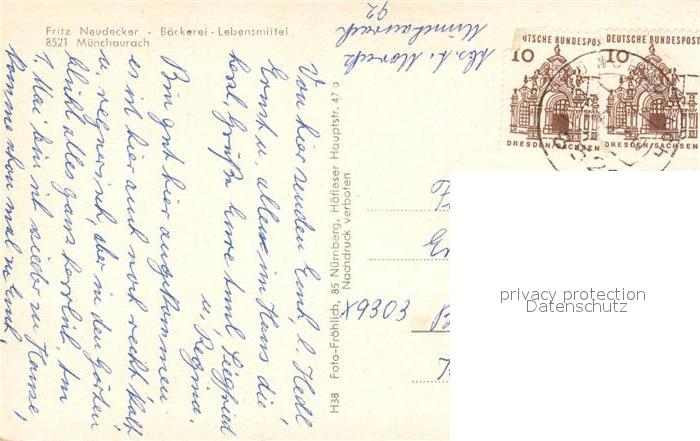 Fritz Neudecker - Bäckerei - Lebensmittel
8521 Münchaurach
Von hier senden Euch, l. Hedl
Ernst u. allen im Haus die
herzl. Grüße Eure Siegfried
u. Regina.
Bin gut hier angekommen
es ist hier auch noch recht kalt
u. regnerisch, aber in den Gärten
blüht alles ganz herrlich. Am
1. Mai bin ich wieder zu Hause,
komme schon mal zu Euch.
H38 Foto-Fröhlich, 85 Nürnberg, Höfleser Hauptstr. 47 a
Nachdruck verboten
Abs. L.
Münchaurach
92
DEUTSCHE BUNDESPOST
10
DRESDEN/SACHSEN
DEUTSCHE BUNDESPOST
10
DRESDEN/SACHSEN
X9303
privacy protection
Datenschutz